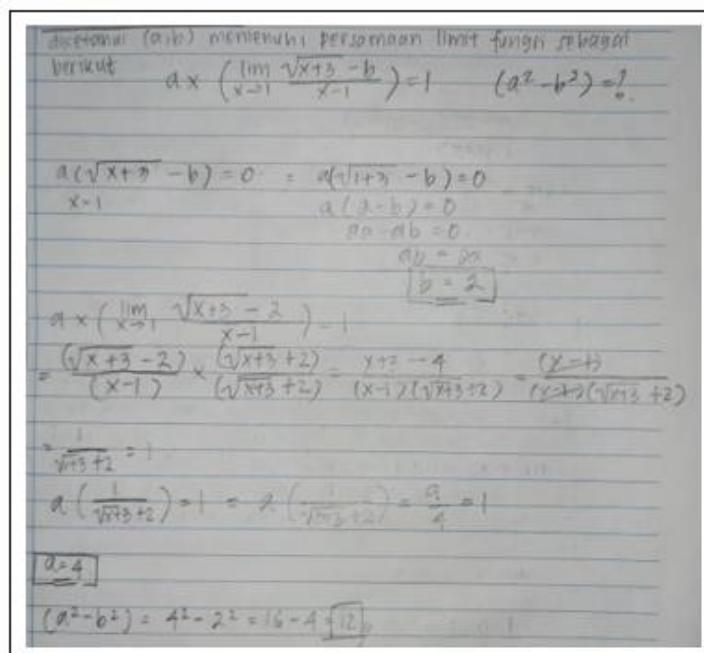 diketahui (a,b) memenuhi persamaan limit fungsi sebagai
berikut a × (lim x→1 (√(x+3) - b)/(x-1)) = 1 (a² - b²) = ?
a(√(x+3) - b) = 0 = a(√(1+3) - b) = 0
x=1
a(2-b) = 0
2a - ab = 0
ab = 2a
b = 2
a × (lim x→1 (√(x+3) - 2)/(x-1)) = 1
= (√(x+3) - 2)/(x-1) × (√(x+3) + 2)/(√(x+3) + 2) = (x+3 - 4)/((x-1)(√(x+3)+2)) = (x-1)/((x-1)(√(x+3)+2))
= 1/(√(x+3)+2) = 1
a(1/(√(x+3)+2)) = 1 = a(1/(√(x+3)+2)) = a/4 = 1
a = 4
(a² - b²) = 4² - 2² = 16 - 4 = 12